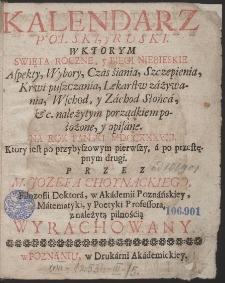 KALENDARZ
POLSKI, y RUSKI.
W KTORYM
SWIĘTA ROCZNE, y BIEGI NIEBIESKIE
Aspekty, Wybory, Czas śiania, Szczepienia,
Krwi puszczania, Lekarstw záżywa-
nia, Wschod, y Záchod Słońcá,
&c. należytym porządkiem po-
łożone, y opisáne.
NA ROK PANSKI
Ktory iest po przybyszowym pierwszy, á po przestę-
pnym drugi.
PRZEZ
M. JOZEFA CHOYNACKIEGO,
Filozofii Doktorá, w Akádemii Poznáńskiey,
Mátemátyki, y Poetyki Professorá,
z należytą pilnością
106.901
WYRACHOWANY.
w POZNANIU, w Drukárni Akádemickiey.